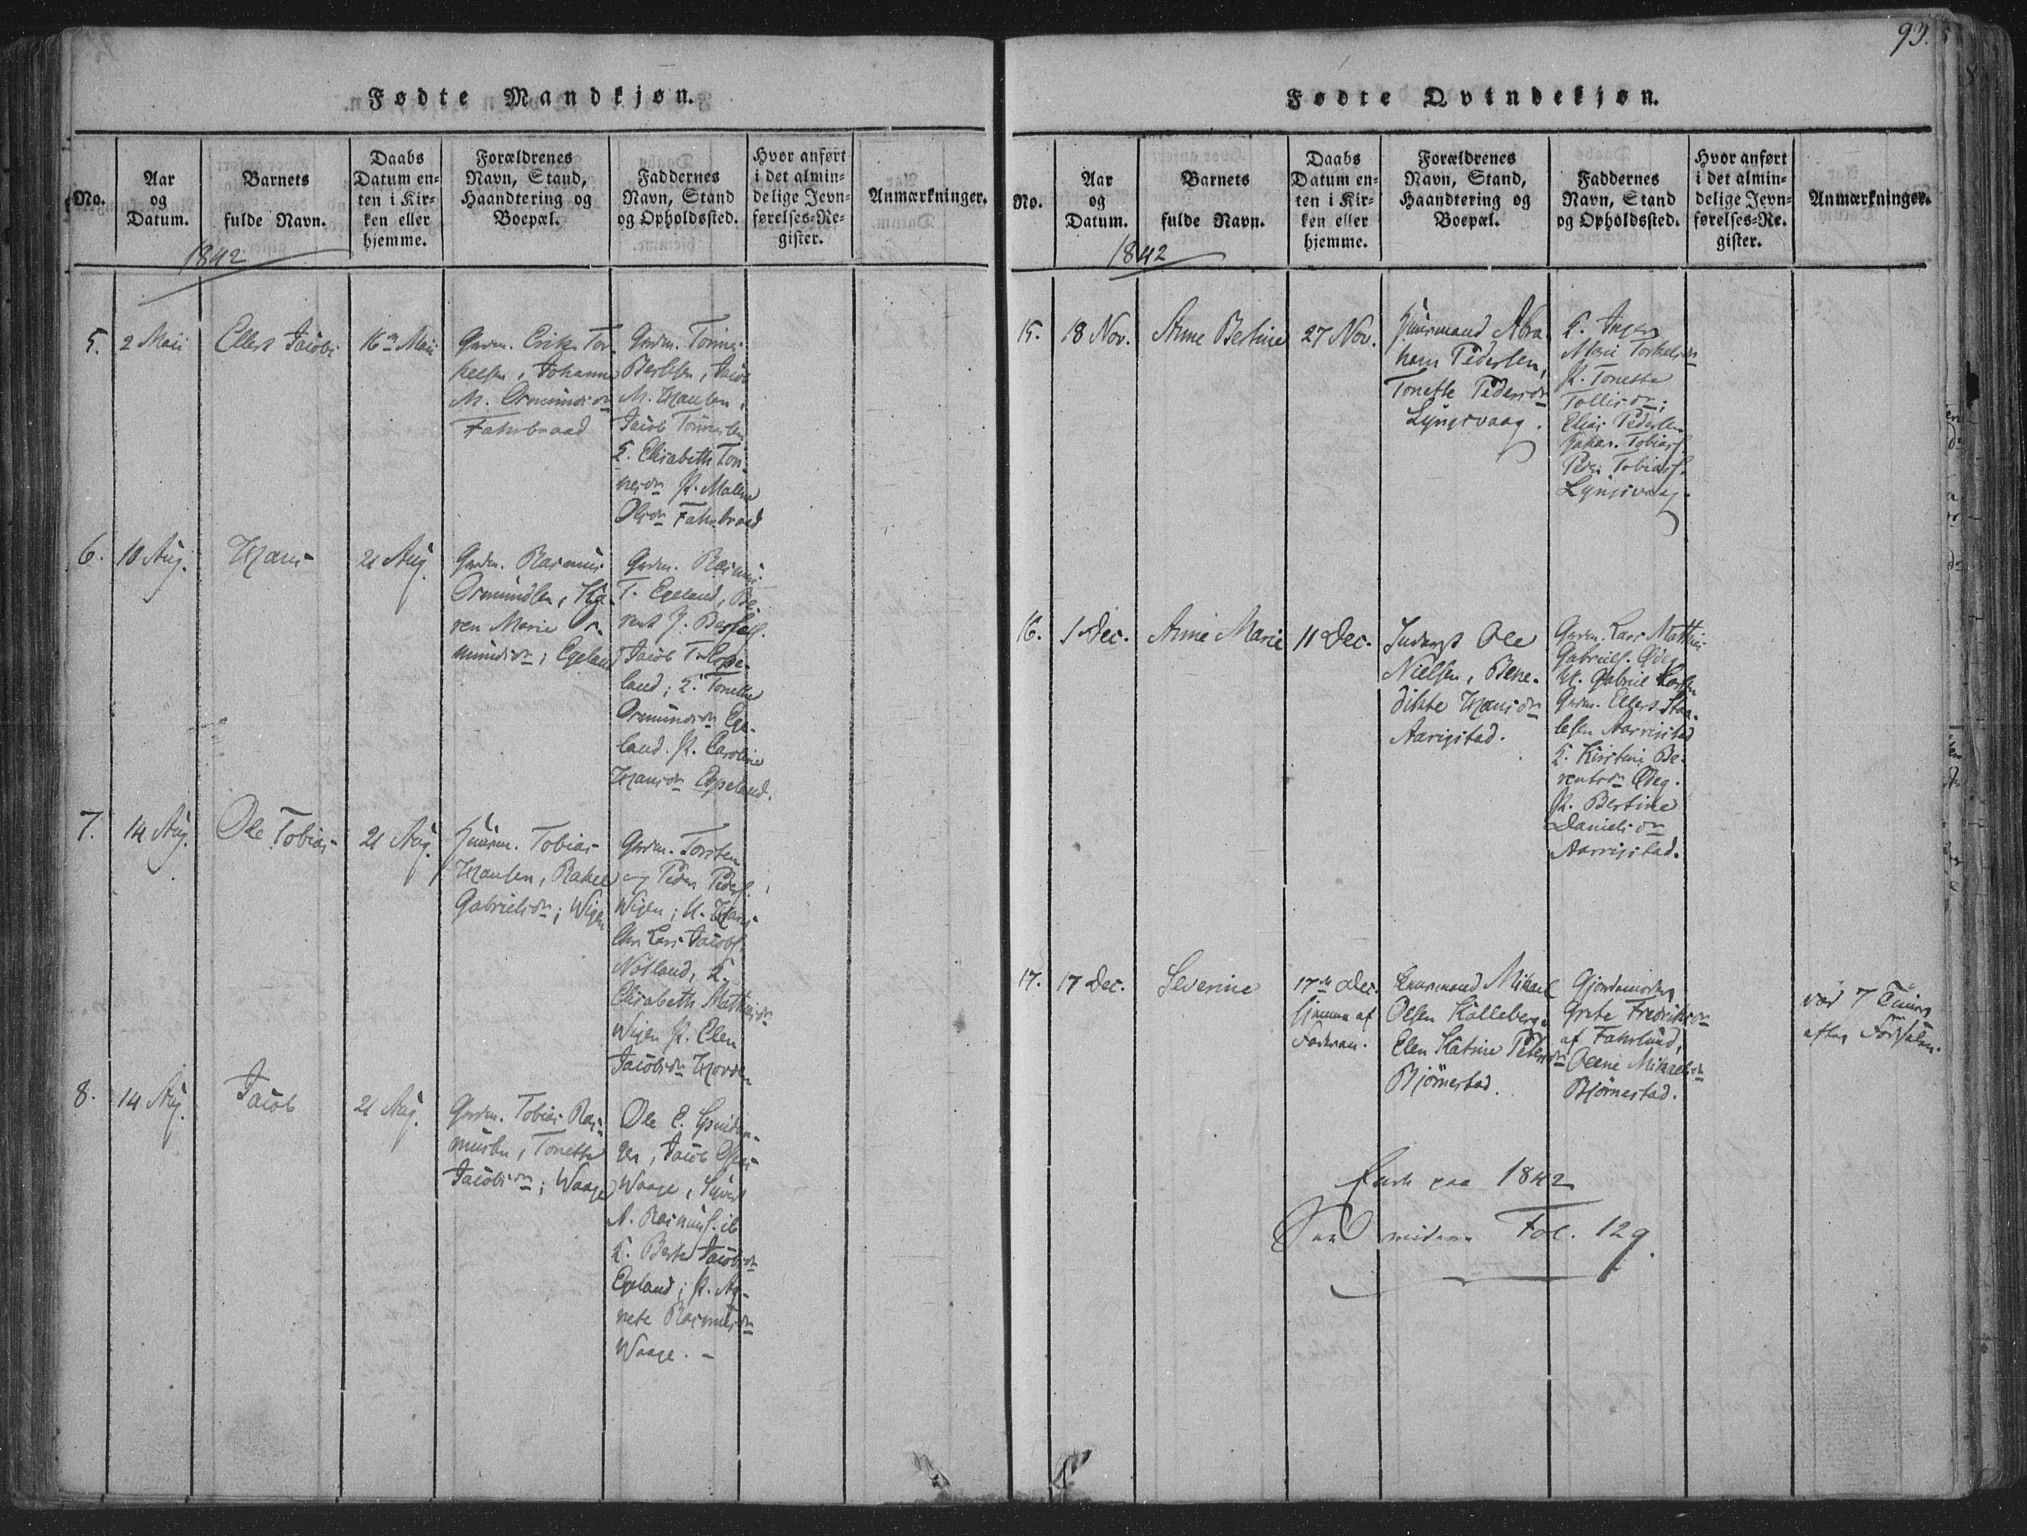 93.
Fødte Mandkjøn.
No.
Aar
og
Datum.
Barnets
fulde Navn.
Daabs
Datum en-
ten i Kir-
ken eller
hjemme.
Forældrenes
Navn, Stand,
Haandtering og
Boepæl.
Faddernes
Navn, Stand
og Opholdssted.
Hvor anført
i det almin-
delige Jevn-
førelses-Re-
gister.
Anmærkninger.
1842
5.
2 Maii
Ellert Jacob
16de Maii
Gaardm. Erik Tor
kelsen, Johanne
M. Ormundsdr
Fahrbraad
Gaardm. Tønnes
Berlsen, Jacob
M. Hansen,
Jacob Tønnesen
Q. Elisabeth Ton
nesdr P. Malene
Olsdr Fahrbraad
6.
10 Aug.
Hans
21 Aug.
Gaardm. Rasmus
Ormundsen, Ka-
ren Marie Or-
mundsdr; Egeland
Gaardm. Rasmus
T. Egeland, Be-
rent J.
Jacob T. Espe-
land; Q. Tonette
Ormundsdr Ege-
land. P. Caroline
Hansdr Espeland.
7.
14 Aug.
Ole Tobias
21 Aug.
Huusm. Tobias
Hansen, Rakel
Gabrielsdr; Wigen
Gaardm. Torsten
og Peder Peders.
Wigen; U. Hans
Lars Jacobs.
Notland, Q.
Elisabeth Mathiasdr
Wigen P. Elen
Jacobsdr
8.
14 Aug.
Jacob
21 Aug.
Gaardm. Tobias Ras-
musen, Tonette
Jacobsdr; Waage
Ole E.
Jacob
Waage,
A. Rasmuss. ib
Q. Berte Jacobsdr
Egeland; P. Ag-
nete Rasmusdr
Waage. –
Fødte Qvindekjøn.
No.
Aar
og
Datum.
Barnets
fulde Navn.
Daabs
Datum en-
ten i Kir-
ken eller
hjemme.
Forældrenes
Navn, Stand,
Haandtering og
Boepæl.
Faddernes
Navn, Stand
og Opholdssted.
Hvor anført
i det almin-
delige Jevn-
førelses-Re-
gister.
Anmærkninger.
1842
15.
18 Nov.
Anne Bertine
27 Nov.
Huusmand Abra
ham Pedersen,
Tonette Pedersdr
Lyngsvaag.
Q. Inger
Marie Torkelsdr
P. Tonette
Tollisdr;
Elias Pedersen
Johan Tobias.
Peder Tobias.
Lyngsvaag.
16.
1 Dec.
Anne Marie
11 Dec.
Inderst Ole
Nielsen, Bene-
dikte Hansdr
Aarrestad.
Gaardm. Lars Mathias
Gabriels. Ødeg.
U. Gabriel Larsen
Gaardm. Ellert Staa-
lesen Aarrestad
Q. Kirstine Be-
rentsdr Ødeg.
P. Bertine
Danielsdr
Aarrestad.
17.
17 Dec.
Severine
17de Dec.
hjemme af
Faderen.
Huusmand Mikael
Olsen Kalleberg
Elen Katrine Petersdr
Bjørnestad.
Gjordemoder
Grete Fredriksdr
af Fahrsund,
Olene Mikaelsdr
Bjørnestad.
død 7 Timer
efter Fødselen.
Ende paa 1842
See videre Fol. 129.